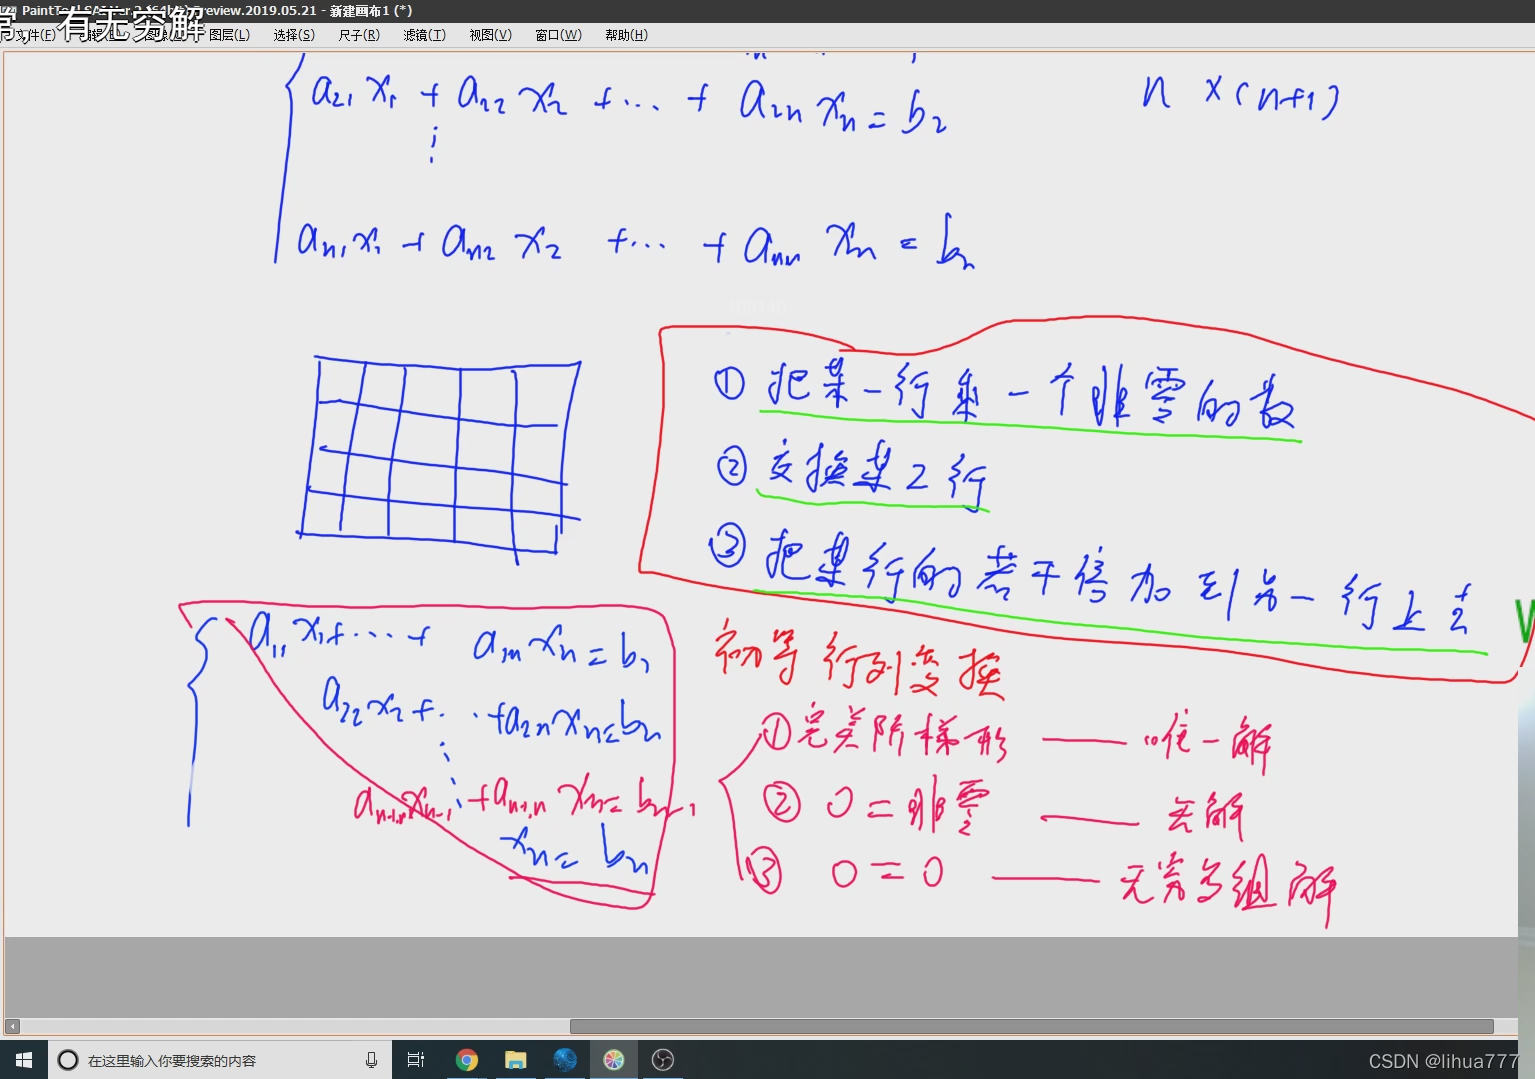 PaintTool SAI Ver.2 (64bit) Preview.2019.05.21 - 新建画布1 (*)
有无穷解
文件(F) 图层(L) 选择(S) 尺子(R) 滤镜(T) 视图(V) 窗口(W) 帮助(H)
a₂₁ x₁ + a₂₂ x₂ + ... + a₂ₙ xₙ = b₂
n × (n+1)
⋮
aₙ₁ x₁ + aₙ₂ x₂ + ... + aₙₙ xₙ = bₙ
① 把某一行乘一个非零的数
② 交换某2行
③ 把某行的若干倍加到另一行上去
初等行列变换
a₁₁ x₁ + ... + a₁ₙ xₙ = b₁
a₂₂ x₂ + ... + a₂ₙ xₙ = bₙ
⋮
aₙ₋₁,ₙ₋₁ xₙ₋₁ + aₙ₋₁,ₙ xₙ = bₙ₋₁
xₙ = bₙ
① 完美阶梯形 —— 唯一解
② 0 = 非零 —— 无解
③ 0 = 0 —— 无穷多组解
在这里输入你要搜索的内容
CSDN @lihua777